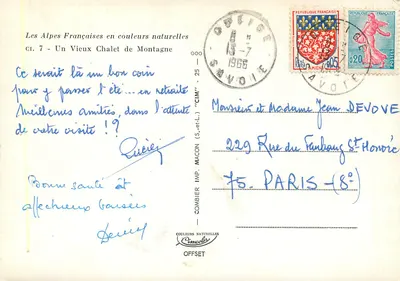 Les Alpes Françaises en couleurs naturelles
CI. 7 - Un Vieux Chalet de Montagne
Ce serait là un bon coin
pour y passer l'été... en retraite
Meilleures amitiés, dans l'attente
de votre visite !?
Lucien
Bonne santé et
affectueux baisers
Denise
COMBIER IMP. MACON (S.-et-L.) "CIM" - 25 - 000
COULEURS NATURELLES
Cimcolor
OFFSET
QUEIGE
13-7
1966
SAVOIE
0,05
0,20
Monsieur et Madame Jean DEVOVE
229 Rue du Faubourg St Honoré
75. PARIS - (8e)